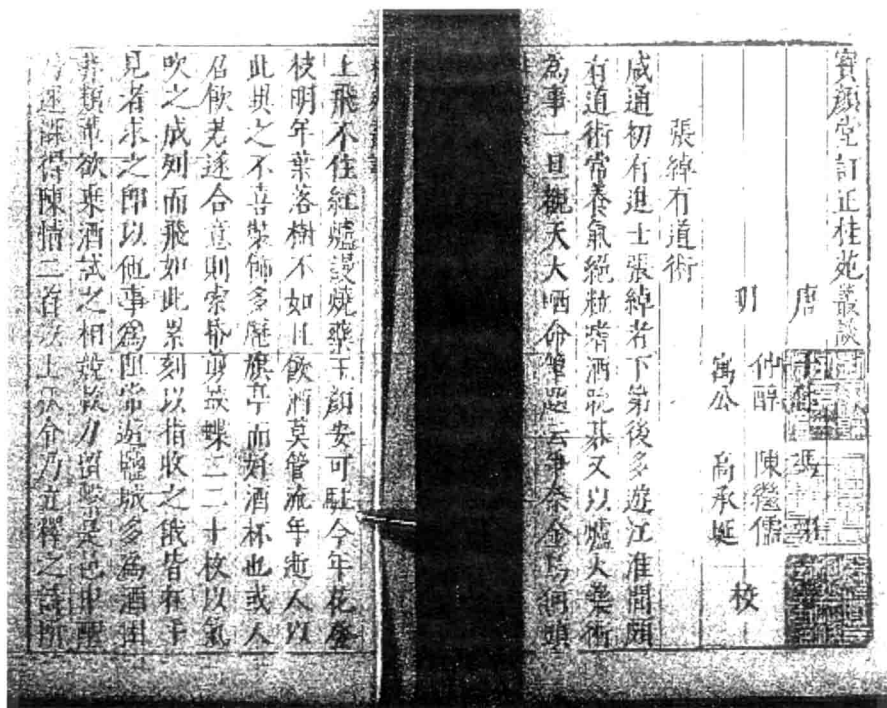 寶顏堂訂正桂苑叢談
唐 馮翊
明 仲醇 陳繼儒
寓公 高承埏 校
張綽有道術
咸通初有進士張綽者下第後多遊江淮間頗
有道術常養氣絕粒嗜酒耽碁又以爐火藥術
為事一旦覩天大哂命筆題云爭奈金烏何頭
上飛不住紅爐謾燒藥玉顏安可駐今年花發
枝明年葉落樹不如且飲酒莫管流年逝人以
此異之不喜裝飾多歷旗亭而好酒杯也或人
召飲若遂合意則索昏剪蛺蝶二三十枚以氣
吹之成列而飛如此累刻以指收之俄皆在手
見者求之即以他事為阻常遊鹽城多為酒困
非類輩欲乘酒試之相競較力留繫是邑中醒
得陳情二首以上張令乃立釋之詩所